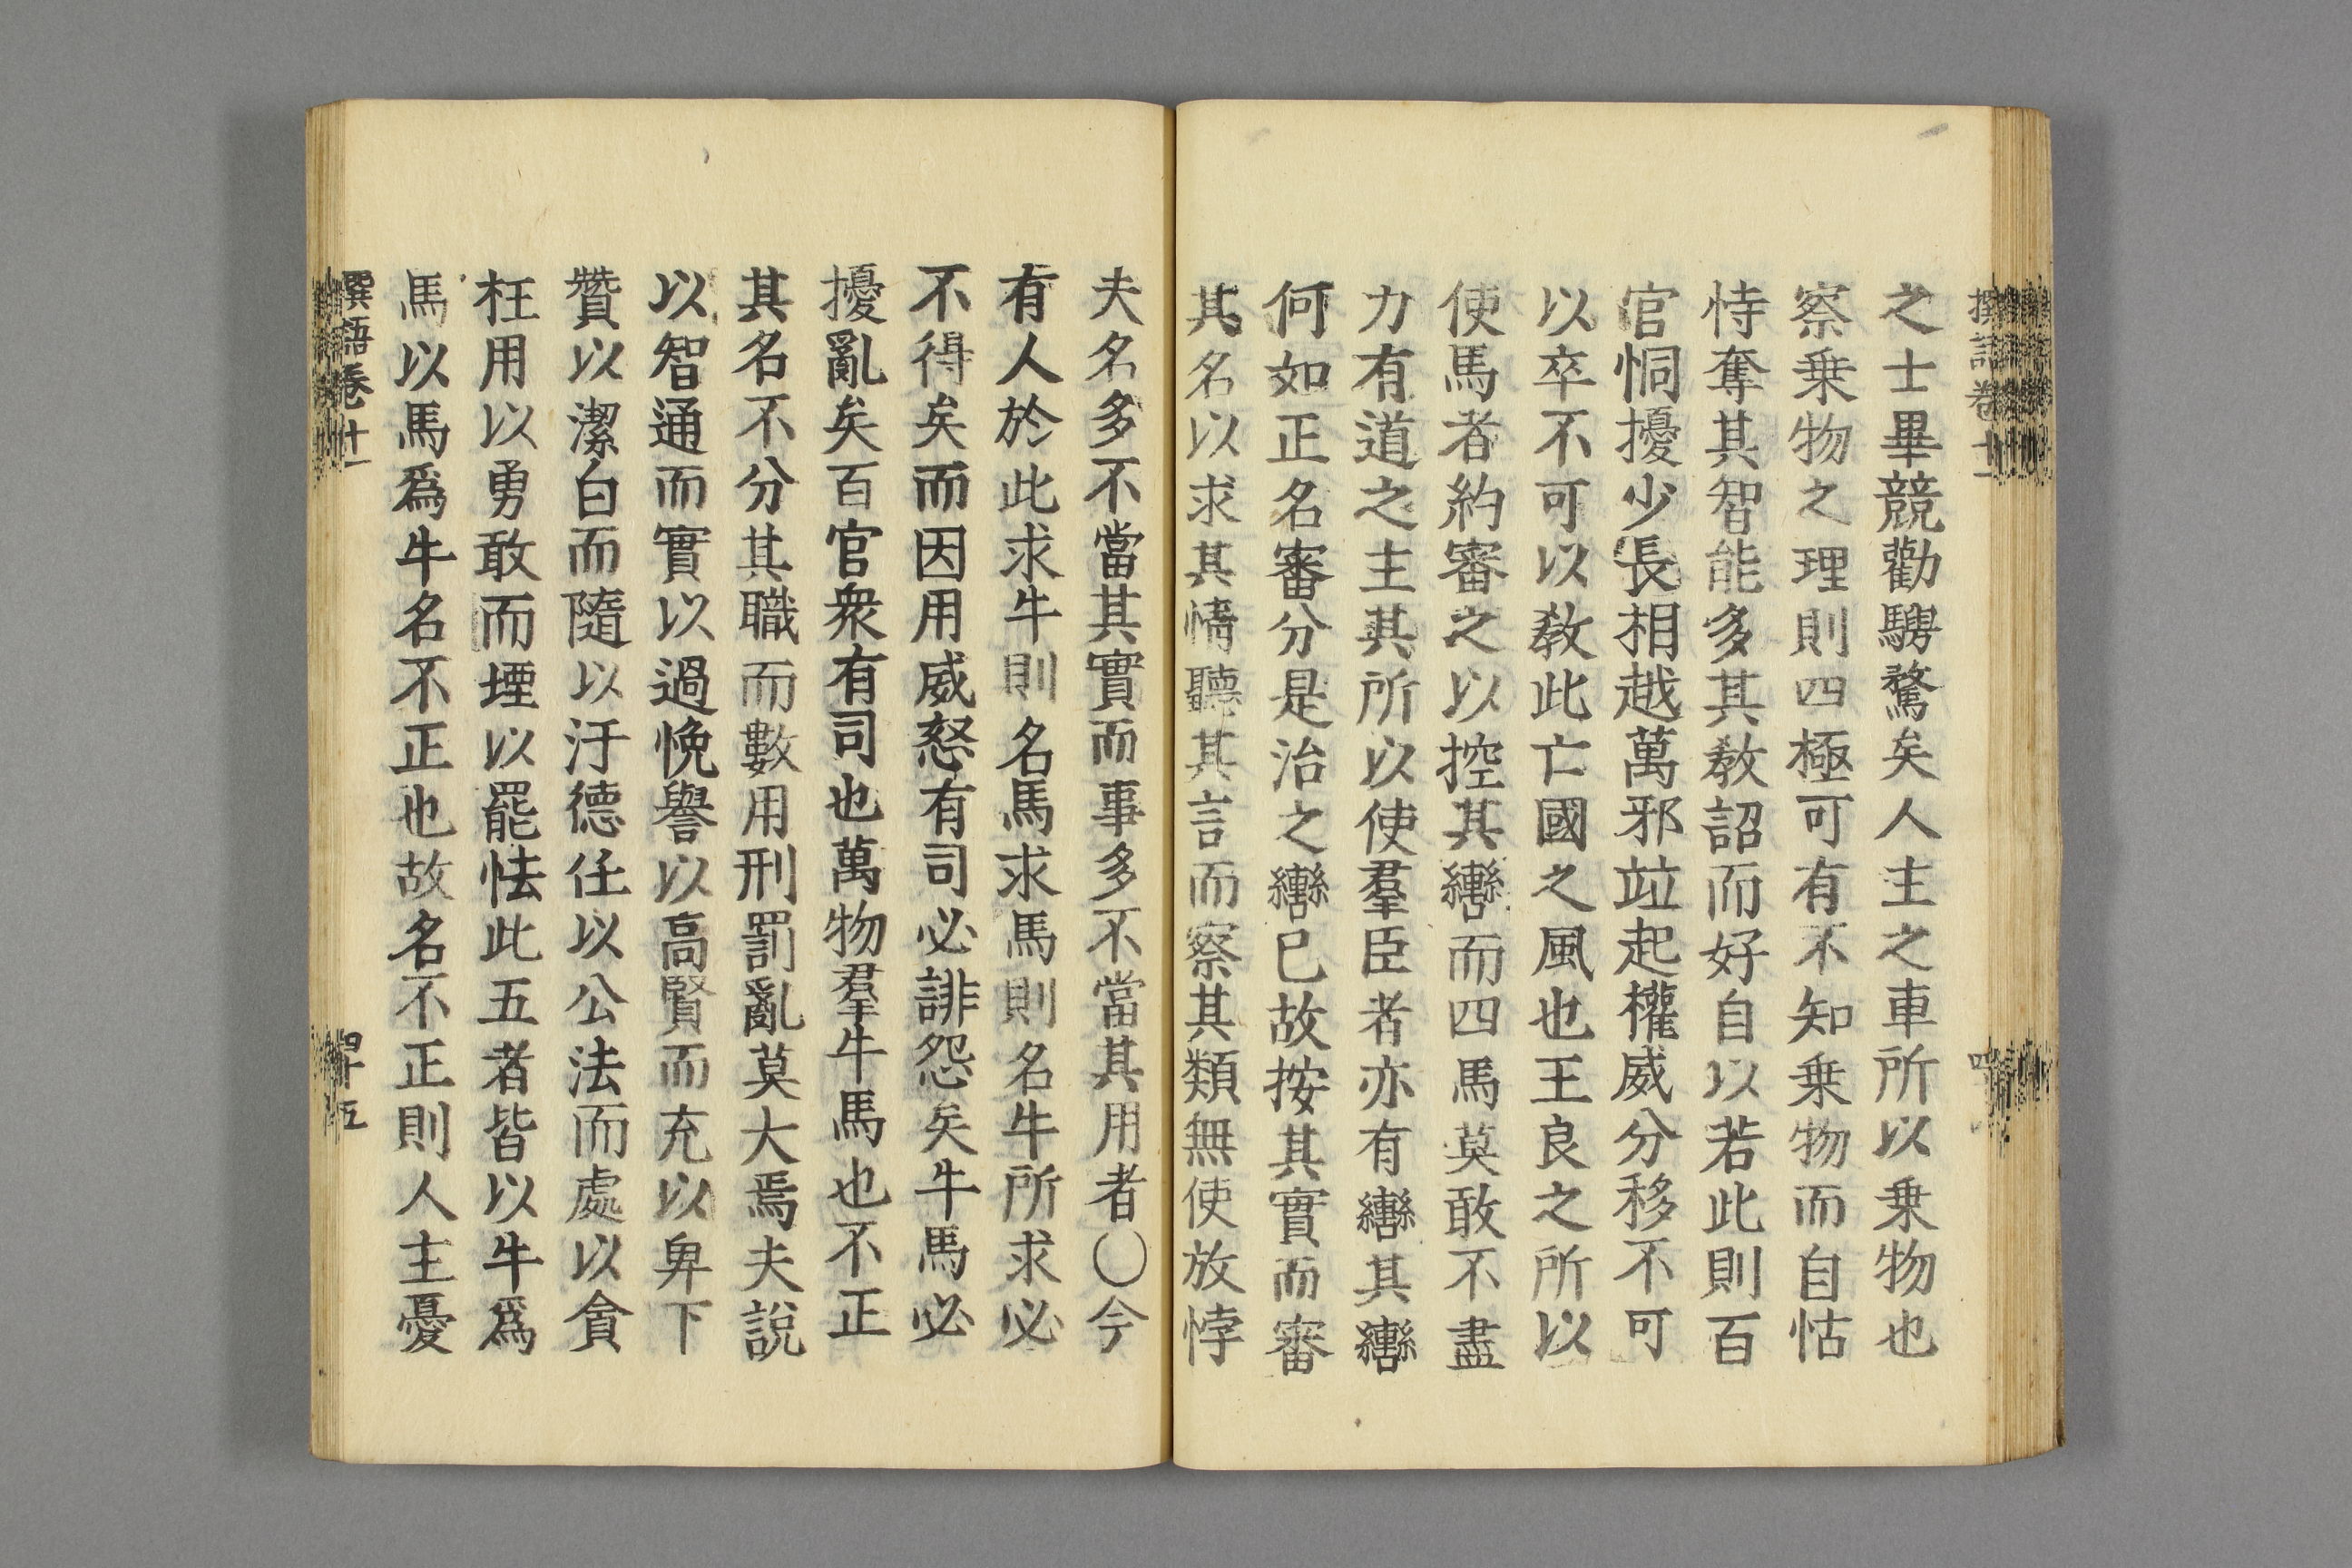 撰語卷十一
之士畢競勸騁騖矣人主之車所以乗物也
察乗物之理則四極可有不知乗物而自怙
恃奪其智能多其敎詔而好自以若此則百
官恫擾少長相越萬邪竝起權威分移不可
以卒不可以敎此亡國之風也王良之所以
使馬者約審之以控其轡而四馬莫敢不盡
力有道之主其所以使羣臣者亦有轡其轡
何如正名審分是治之轡已故按其實而審
其名以求其情聽其言而察其類無使放悖
夫名多不當其實而事多不當其用者〇今
有人於此求牛則名馬求馬則名牛所求必
不得矣而因用威怒有司必誹怨矣牛馬必
擾亂矣百官衆有司也萬物羣牛馬也不正
其名不分其職而數用刑罰亂莫大焉夫説
以智通而實以過悗譽以高賢而充以卑下
贊以潔白而隨以汙德任以公法而處以貪
枉用以勇敢而堙以罷怯此五者皆以牛爲
馬以馬爲牛名不正也故名不正則人主憂
撰語卷十一
四十五